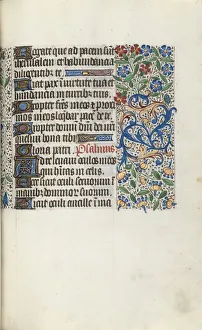 Rogate que ad pacem sunt
iherusalem et habundancia
diligentibz te
Fiat pax in virtute tua et
habundancia in turribz tuis
Propter fratres meos et proxi
mos meos loquebar pacem de te
Propter domum domini dei nostri
quesiui bona tibi
Gloria patri Psalmus
Ad te leuaui oculos meos
qui habitas in celis
Ecce sicut oculi seruorum in
manibz dominorum suorum
Sicut oculi ancille in ma